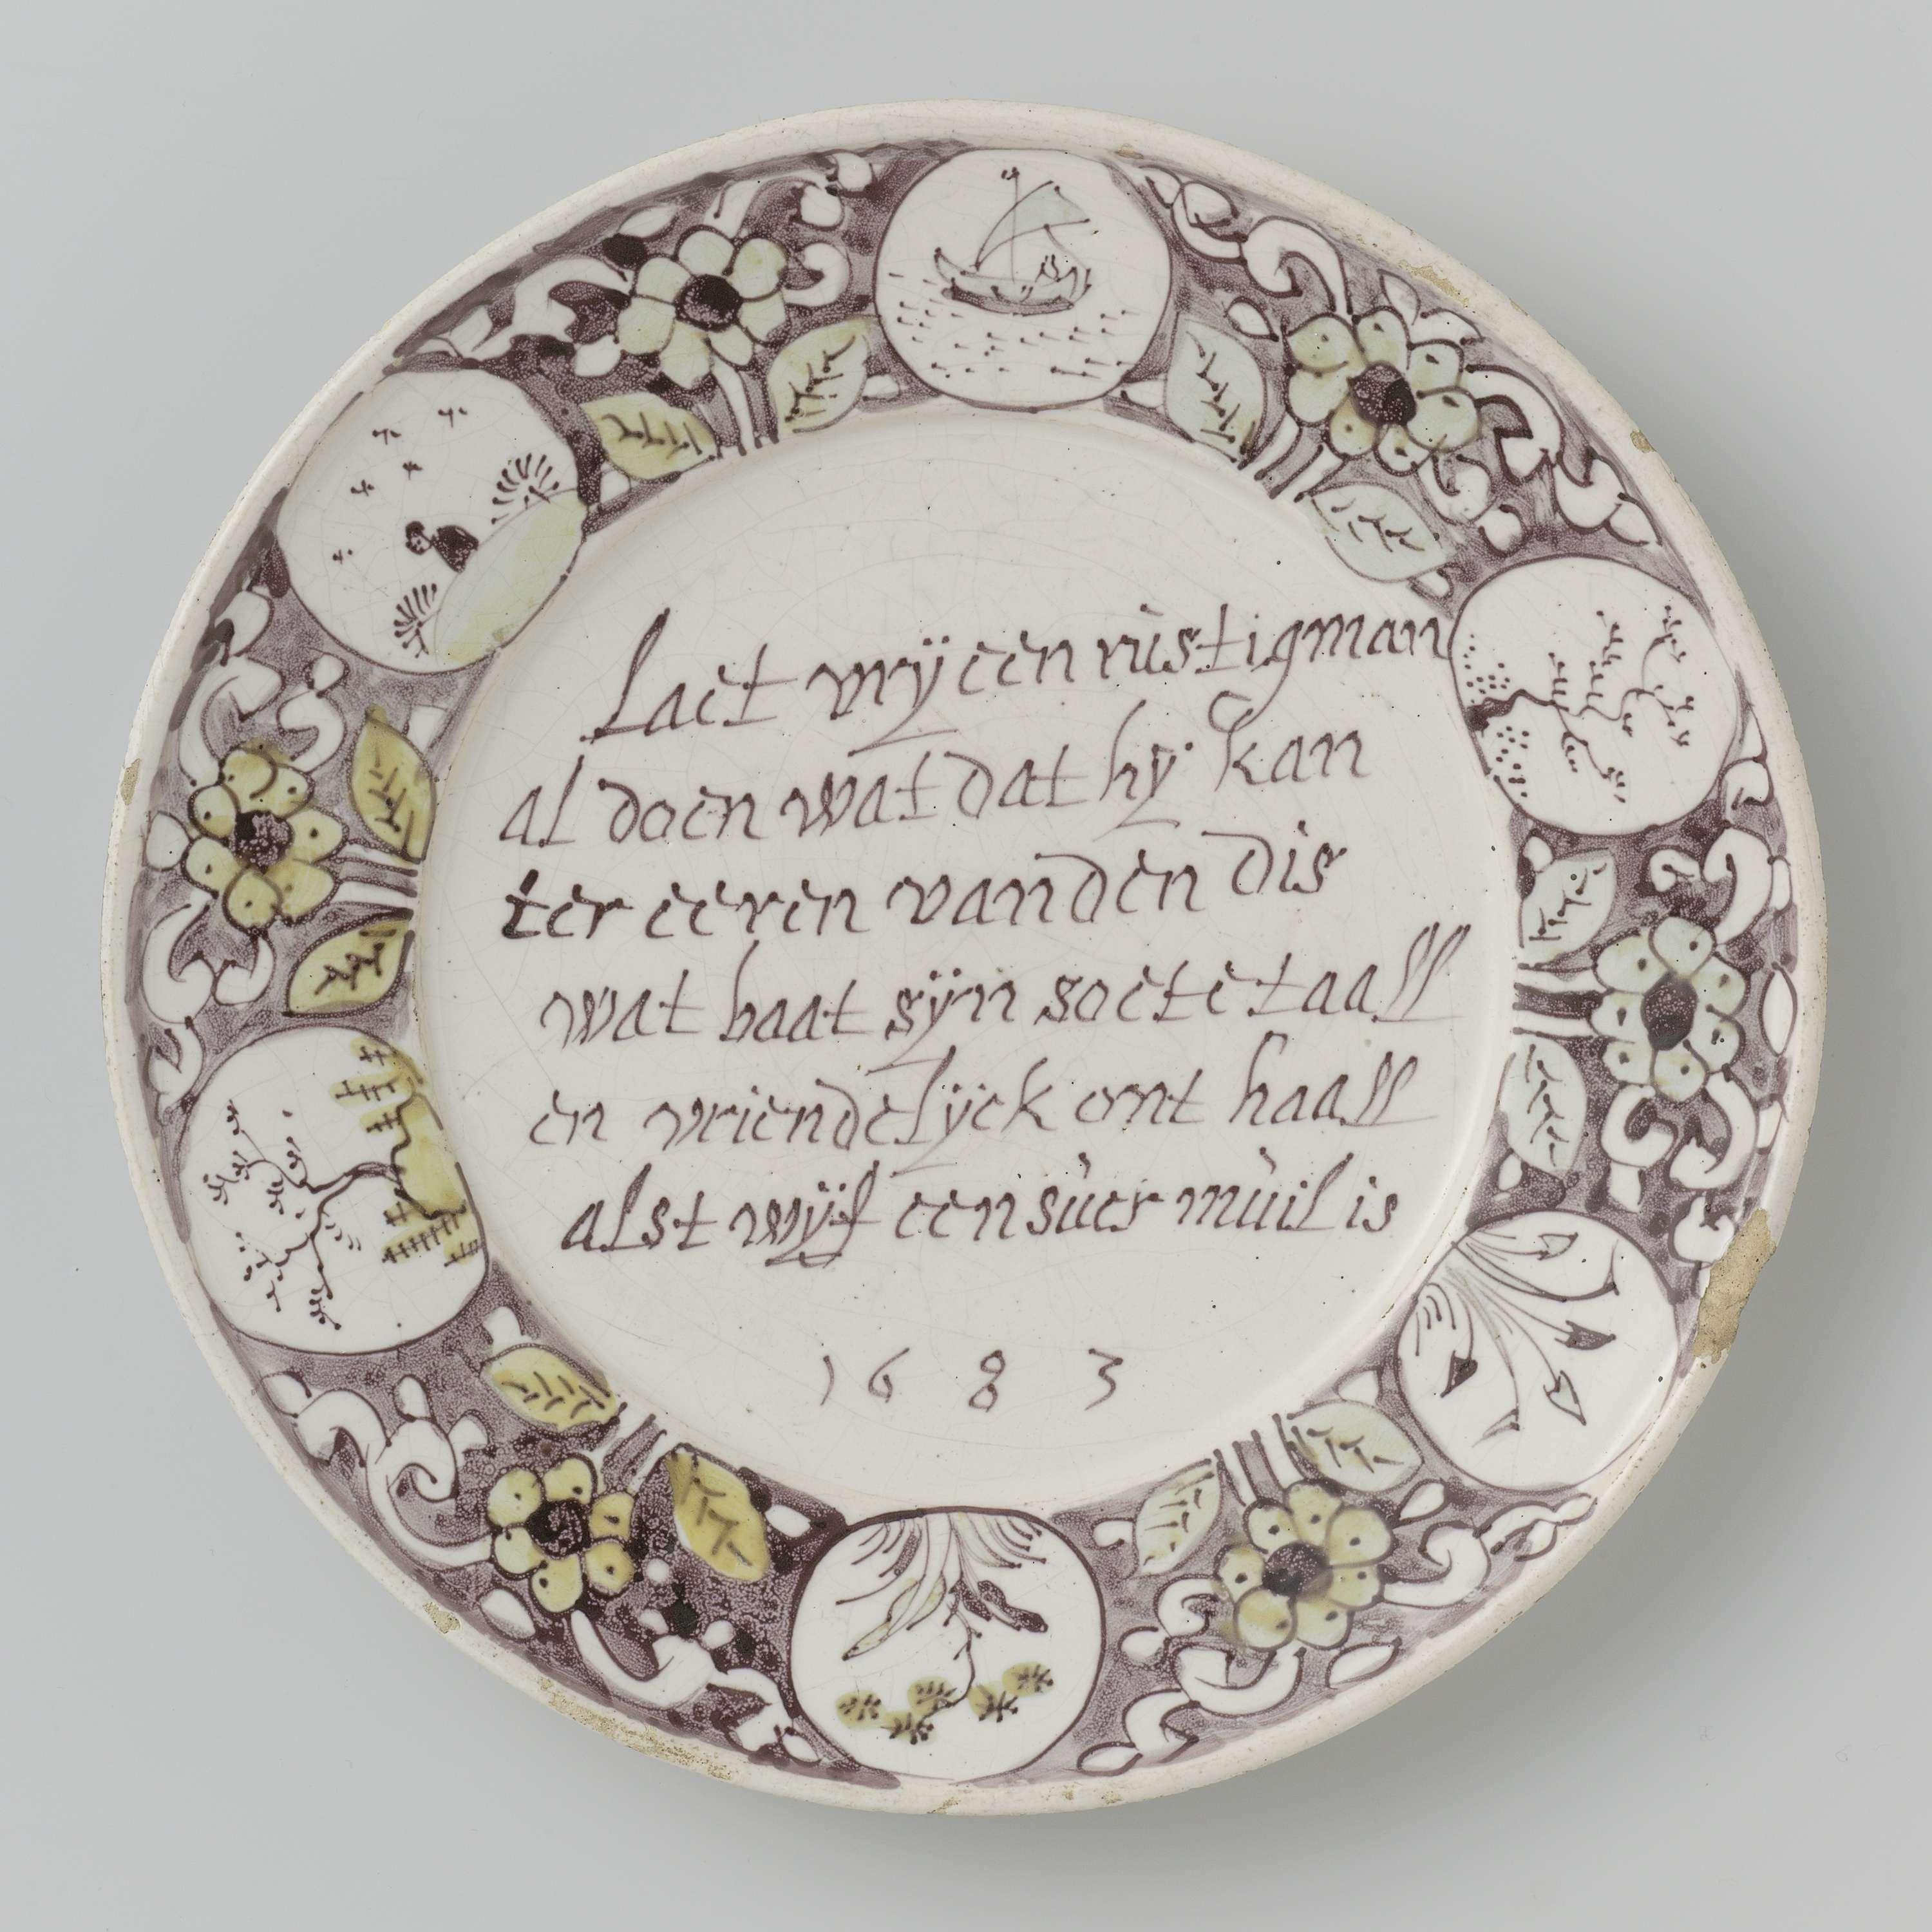 Laet vrÿ een rùstig man
al doen wat dat hÿ kan
ter eeren van den dis
wat baat sÿn soete taall
en vriendelÿck ont haall
alst wÿf een sùer mùil is
1683